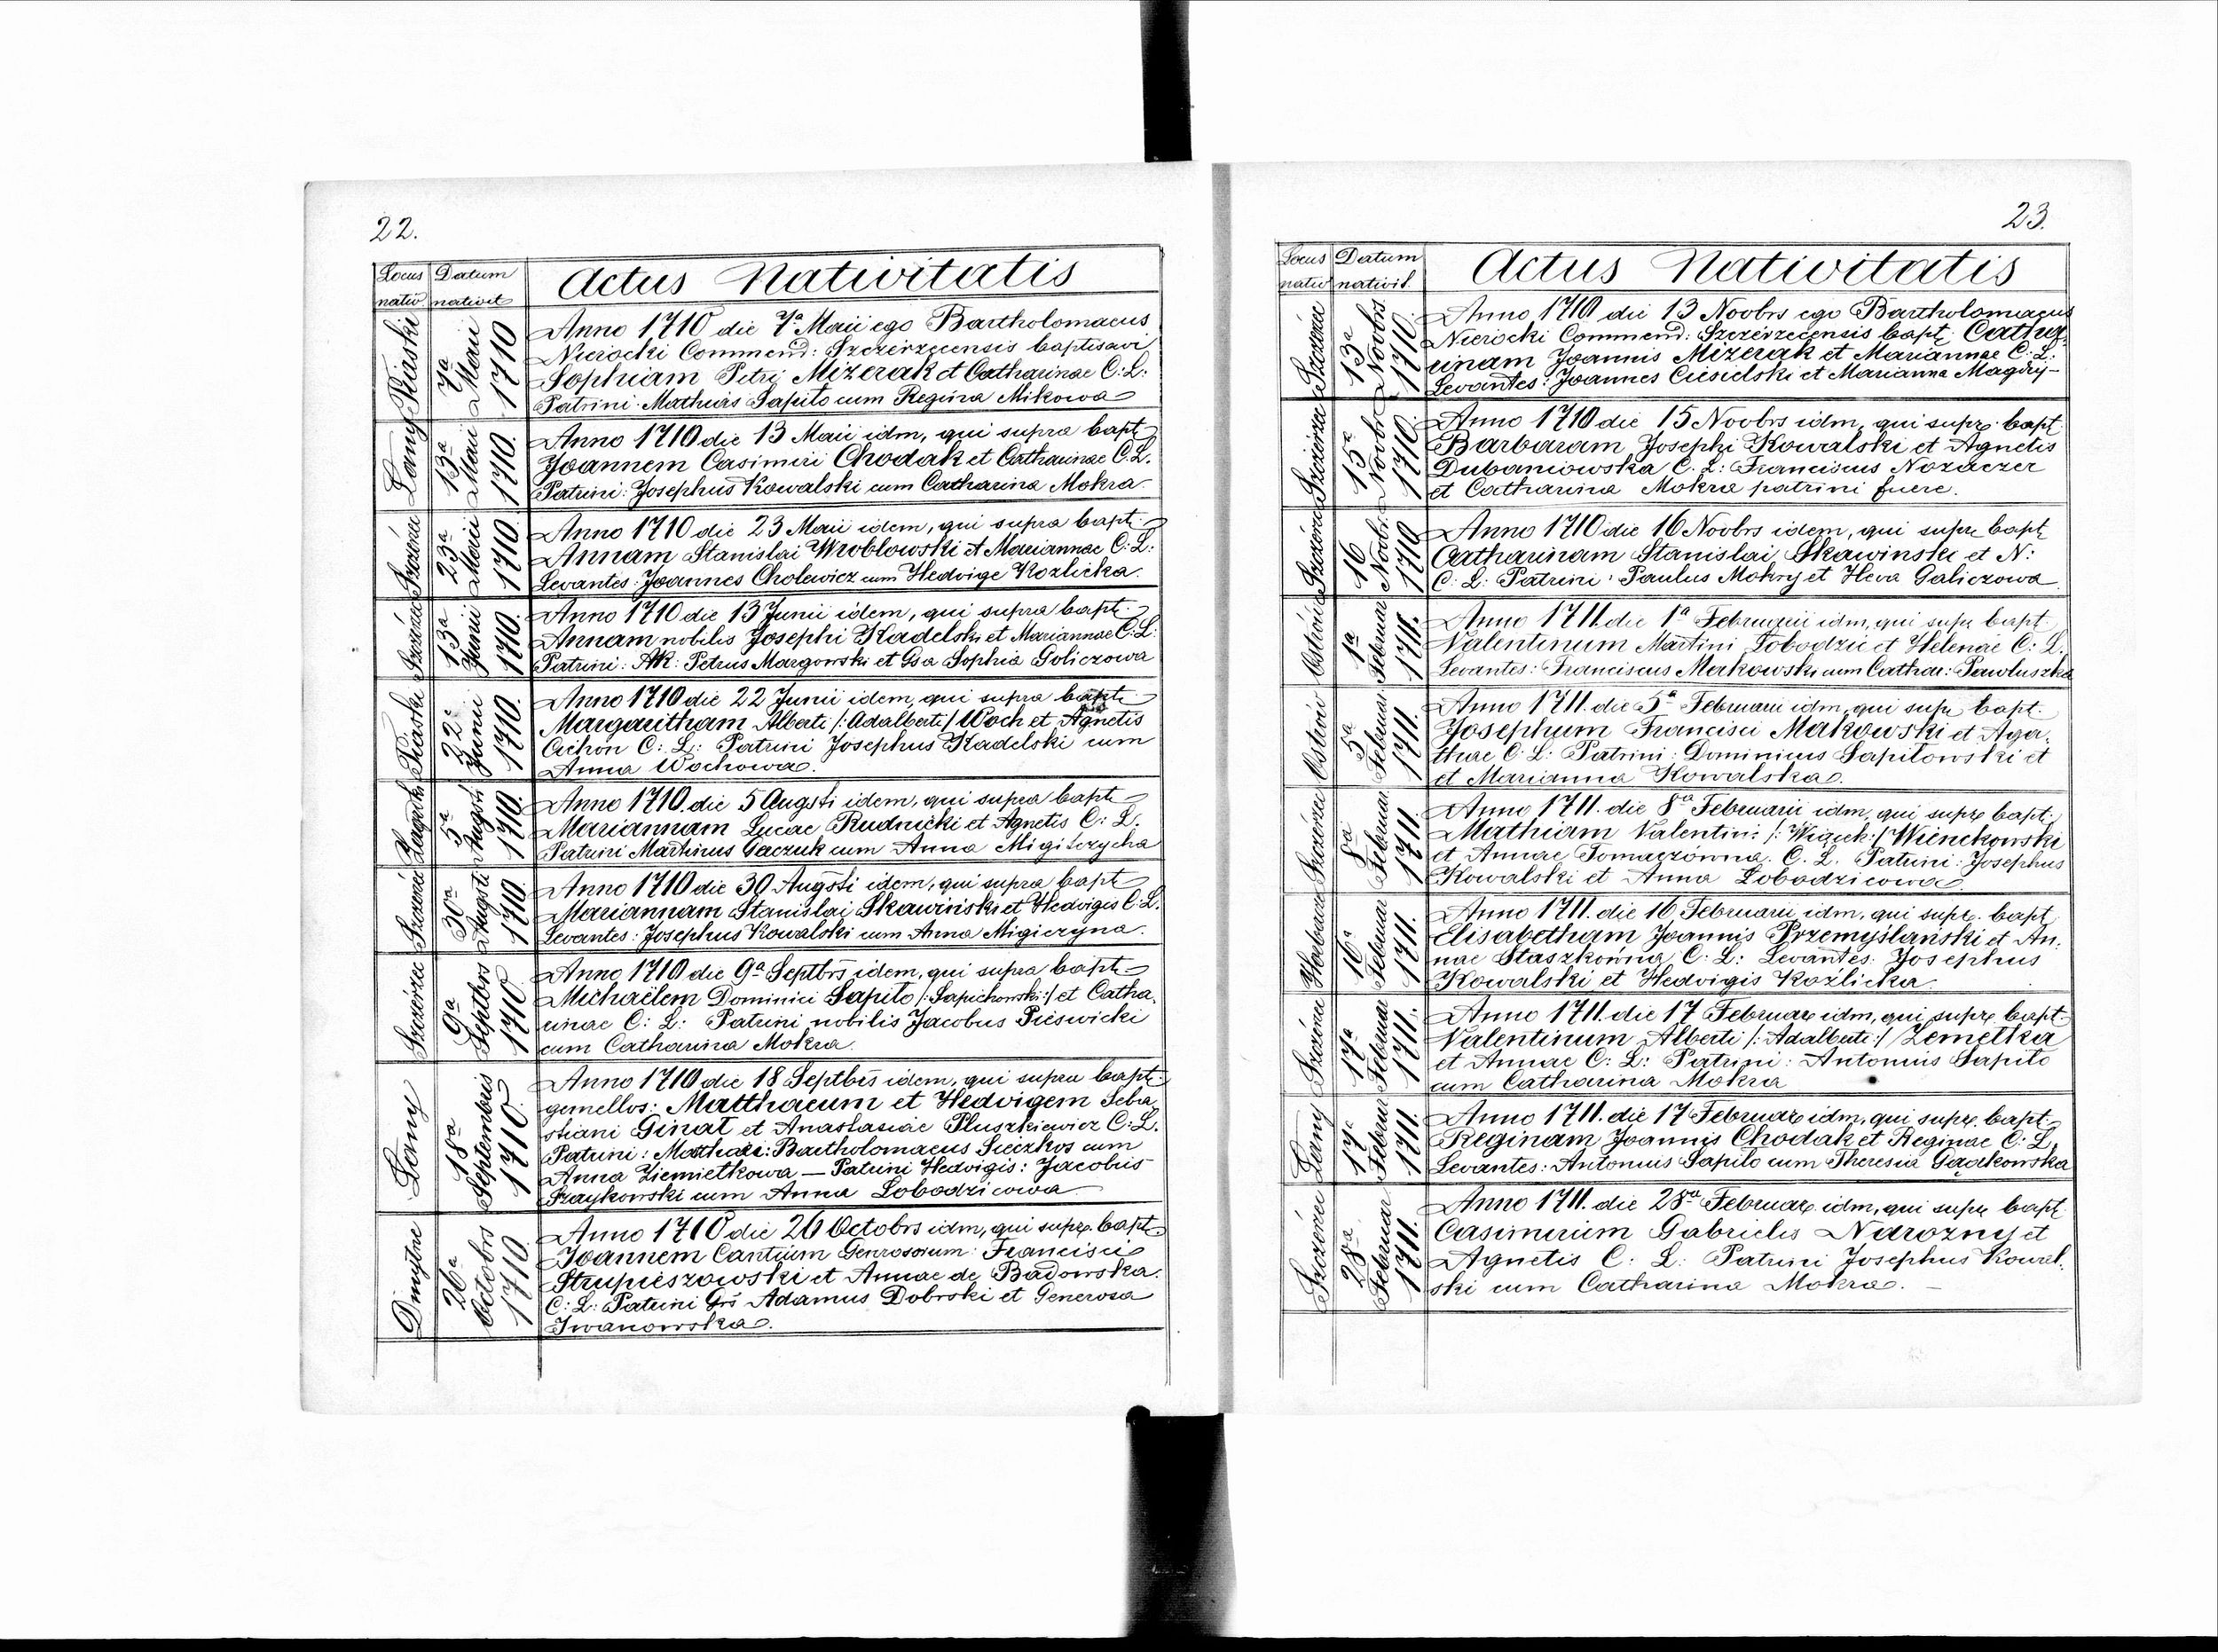 22.
Locus nativ. Datum nativit Actus Nativitatis
Piaski
7a Maii 1710
Anno 1710 die 7a Maii ego Bartholomaeus
Nierocki Commend: Szczerzecensis baptisavi
Sophiam Petri Mizerak et Catharinae C: L:
Patrini Mathias Sapito cum Regina Mikowa
Łany
13a Maii 1710.
Anno 1710 die 13 Maii idm, qui supra bapt
Joannem Casimiri Chodak et Catharinae C. L.
Patrini: Josephus Kowalski cum Catharina Mokra
Szczérzéc
23a Maii 1710
Anno 1710 die 23 Maii idem, qui supra bapt:
Annam Stanislai Wroblowski et Mariannae C: L:
Levantes: Joannes Cholewicz cum Hedvige Kozlicka.
Szczérzéc
13a Junii 1710.
Anno 1710 die 13 Junii idem, qui supra bapt:
Annam nobilis Josephi Kadelski et Mariannae C: L:
Patrini: AR: Petrus Margonski et Gsa Sophia Goliczowa
Piaski
22a Junii 1710.
Anno 1710 die 22 Junii idem, qui supra bapt:
Margaritham Alberti /: Adalberti / Woch et Agnetis
Cichon C: L: Patrini Josephus Kadelski cum
Anna Wochowa.
5a Augsti 1710.
Anno 1710. die 5 Augsti idem, qui supra bapt
Mariannam Lucae Rudnicki et Agnetis C: L.
Patrini Martinus Gaczuk cum Anna
Szczérzéc
30a Augsti 1710
Anno 1710 die 30 Augsti idem, qui supra bapt
Mariannam Stanislai Skawiński et Hedvigis C: L.
Levantes: Josephus Kowalski cum Anna Migiczyna.
Szczérzéc
9a Septbrs 1710
Anno 1710 die 9a Septbrs idem, qui supra bapt
Michaëlem Dominici Sapito /: Sapichowski :/ et Catha,
rinae C: L: Patrini nobilis Jacobus Pieswicki
cum Catharina Mokra.
Łany
18a Septembris 1710
Anno 1710 die 18 Septbrs idem, qui supra bapt:
gemellos: Matthaeum et Hedvigem Seba,
stiani Ginat et Anastasiae Pluszkiewicz C: L.
Patrini: Matthaei: Bartholomaeus Sieczkos cum
Anna Ziemietkowa — Patrini Hedvigis: Jacobus
Szaykowski cum Anna Lobodzicowa
Dmytre
26a Octobrs 1710
Anno 1710 die 26 Octobrs idm, qui supra. bapt
Joannem Cantium Generosorum: Francisci
Strupieszowski et Annae de Badowska.
C: L: Patrini Grs Adamus Dobrski et Generosa
Iwanowska.
23.
Locus nativ Datum nativit. Actus Nativitatis
Szczérzéc
13a Novbrs 1710.
Anno 1710 die 13 Novbrs ego Bartholomaeus
Nierocki Commend: Szczérzecensis bapt: Catha,
rinam Joannis Mizerak et Mariannae C: L:
Levantes: Joannes Ciesielski et Marianna Magdry-
Szczérzéc
15a Novbr 1710.
Anno 1710 die 15 Novbrs idm, qui supra bapt:
Barbaram Josephi Kowalski et Agnetis
Dubaniowska C. L: Franciscus Nozaczer
et Catharina Mokra patrini fuere.
Szczérzéc
16 Novbr. 1710
Anno 1710 die 16 Novbrs idem, qui supra bapt
Catharinam Stanislai Skawinski et N:
C: L: Patrini: Paulus Mokry et Heva Galiczowa
Ostrów
1a Februar 1711.
Anno 1711. die 1a Februarii idm, qui supra bapt.
Valentinum Martini Lobodzic et Helenae C: L.
Levantes: Franciscus Makowski cum Cathar: Pawłuszka
Ostrów
5a Februar 1711.
Anno 1711. die 5a Februarii idm, qui supra bapt.
Josephum Francisci Makowski et Aga,
thae C: L: Patrini: Dominicus Sapitowski et
et Marianna Kowalska.
Szczérzéc
8a Februar 1711.
Anno 1711. die 8a Februarii idm, qui supra bapt:
Mathiam Valentini /: Wiącek :/ Wienckowski
et Annae Tomaczówna. C. L. Patrini: Josephus
Kowalski et Anna Lobodzicowa.
16a Februar 1711.
Anno 1711. die 16 Februarii idm, qui supra. bapt
Elisabetham Joannis Przemyślański et An,
nae Staszkowna C: L: Levantes: Josephus
Kowalski et Hedvigis Koźlicka.
Szczérzéc
17a Februar 1711.
Anno 1711. die 17 Februar idm, qui supra bapt:
Valentinum Alberti /: Adalberti :/ Zemełka
et Annae C: L: Patrini: Antonius Sapito
cum Catharina Mokra
Łany
17a Februar 1711.
Anno 1711. die 17 Februar idm, qui supra bapt.
Reginam Joannis Chodak et Reginae C: L.
Levantes: Antonius Sapito cum Theresia Gądkowska
Szczérzéc
28a Februar 1711.
Anno 1711. die 28a Februar idm, qui supra bapt
Casimirum Gabrielis Narozny et
Agnetis C: L: Patrini Josephus Kowal,
ski cum Catharina Mokra. —